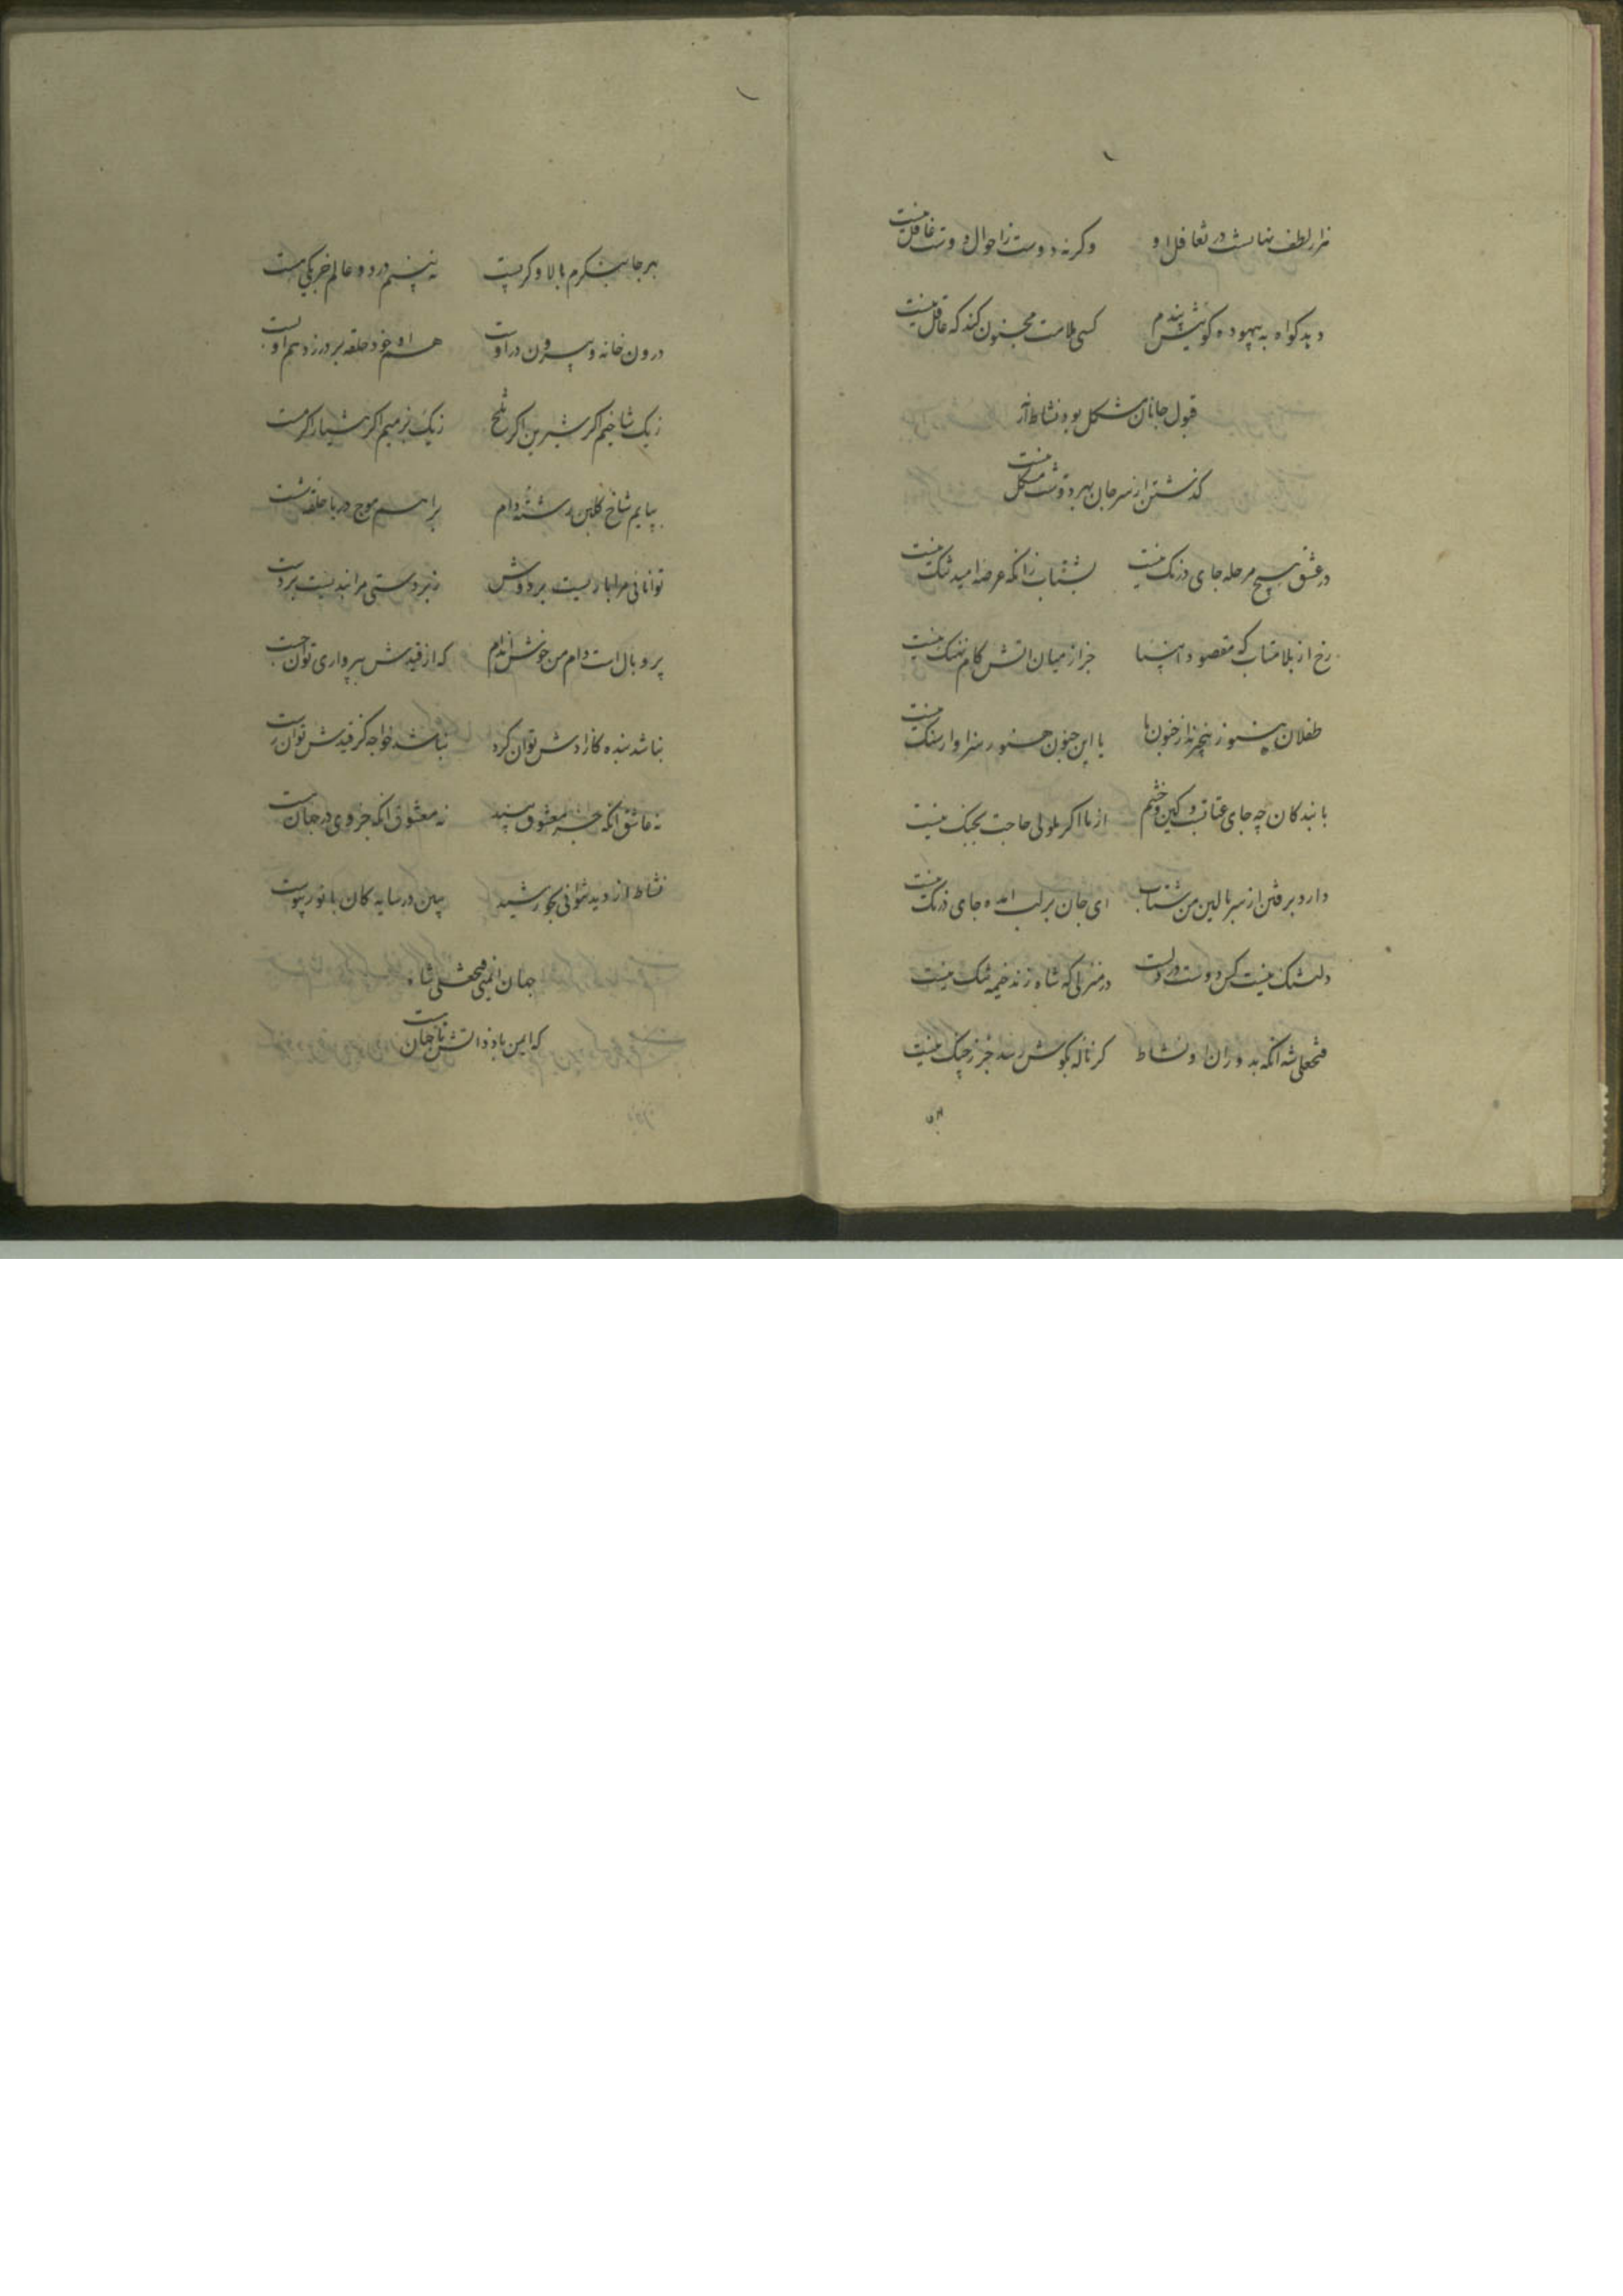 هزار لطف نهانست در تغافل او وگرنه دوست ز احوال دوست غافل نیست
دهد گواه به بیهوده گوئیش پندم کسی ملامت مجنون کند که عاقل نیست
قبول جانان مشکل بود نشاط ار نه
گذشتن از سر جان بهر دوست مشکل نیست
در عشق هیچ مرحله جای درنک نیست بشتاب زانکه عرصه امید تنک نیست
رخ از بلا متاب که مقصود جز از میان اتش و کام نهنک نیست
طفلان هنوز زنجیر با این جنون هنوز سزاوار سنک نیست
با بندکان چه جای عتابست و کین و خشم از ما اکر ملولی حاجت بجنک نیست
دارد برفتن از سر بالین من شتاب ای جان بر لب امده جای درنک نیست
دلتنک نیست کس دوست در دلست در منزلی که شاه زند خیمه تنک نیست
فتحعلی شه انکه بدوران او نشاط کر ناله بکوش رسد جز ز چنک نیست
بهر
بهر جا بنکرم بالا و کر پست نه بینم در دو عالم جز یکی هست
درون خانه و بیرون در اوست هم او خود حلقه بر در زد هم او بست
ز یک شاخیم اکر شیرین اکر تلخ ز یک بزمیم اکر هشیار اکر مست
بپایم شاخ کلبن رشته دام براهم موج دریا حلقه شست
توانائی مرا باریست بر دوش زبردستی مرا بندیست بر دست
پر و بال است دام من خوش اندم که از قیدش بپروازی توان جست
نباشد بنده کازادش توان کرد نباشد خواجه کز قیدش توان رست
نه عاشق انکه جز معشوق بیند نه معشوق انکه جز وی در جهان هست
نشاط ار دید نتوانی بخورشید ببین در سایه کان با نور پیوست
جهان فتحعلی شاه
که این باد و اتش تا جهان هست